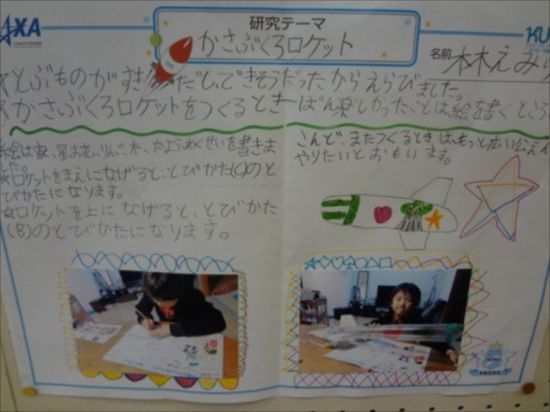 AXA
研究テーマ
かさぶくろロケット
KU
名前
とぶものがすきだし、できそうだったからえらびました。
かさぶくろロケットをつくるとき一ばん楽しかったことは絵を書くところ
絵は家、星、お花、りんご、木、たいようわくせいを書きま
した。
ロケットをまえになげると、とびかた(C)のと
びかたになります。
☆ロケットを上になげると、とびかた
(B)のとびかたになります。
こんど、またつくるときは、もっと広い
やりたいとおもいます。